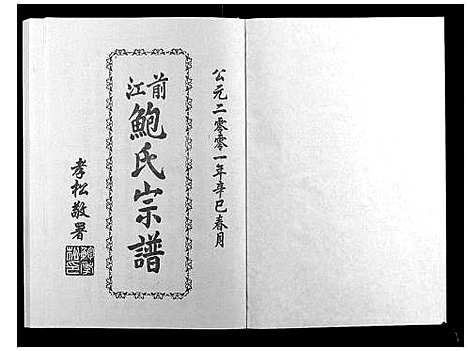 公元二零零一年辛巳春月
前江
鲍氏宗譜
孝松敬署